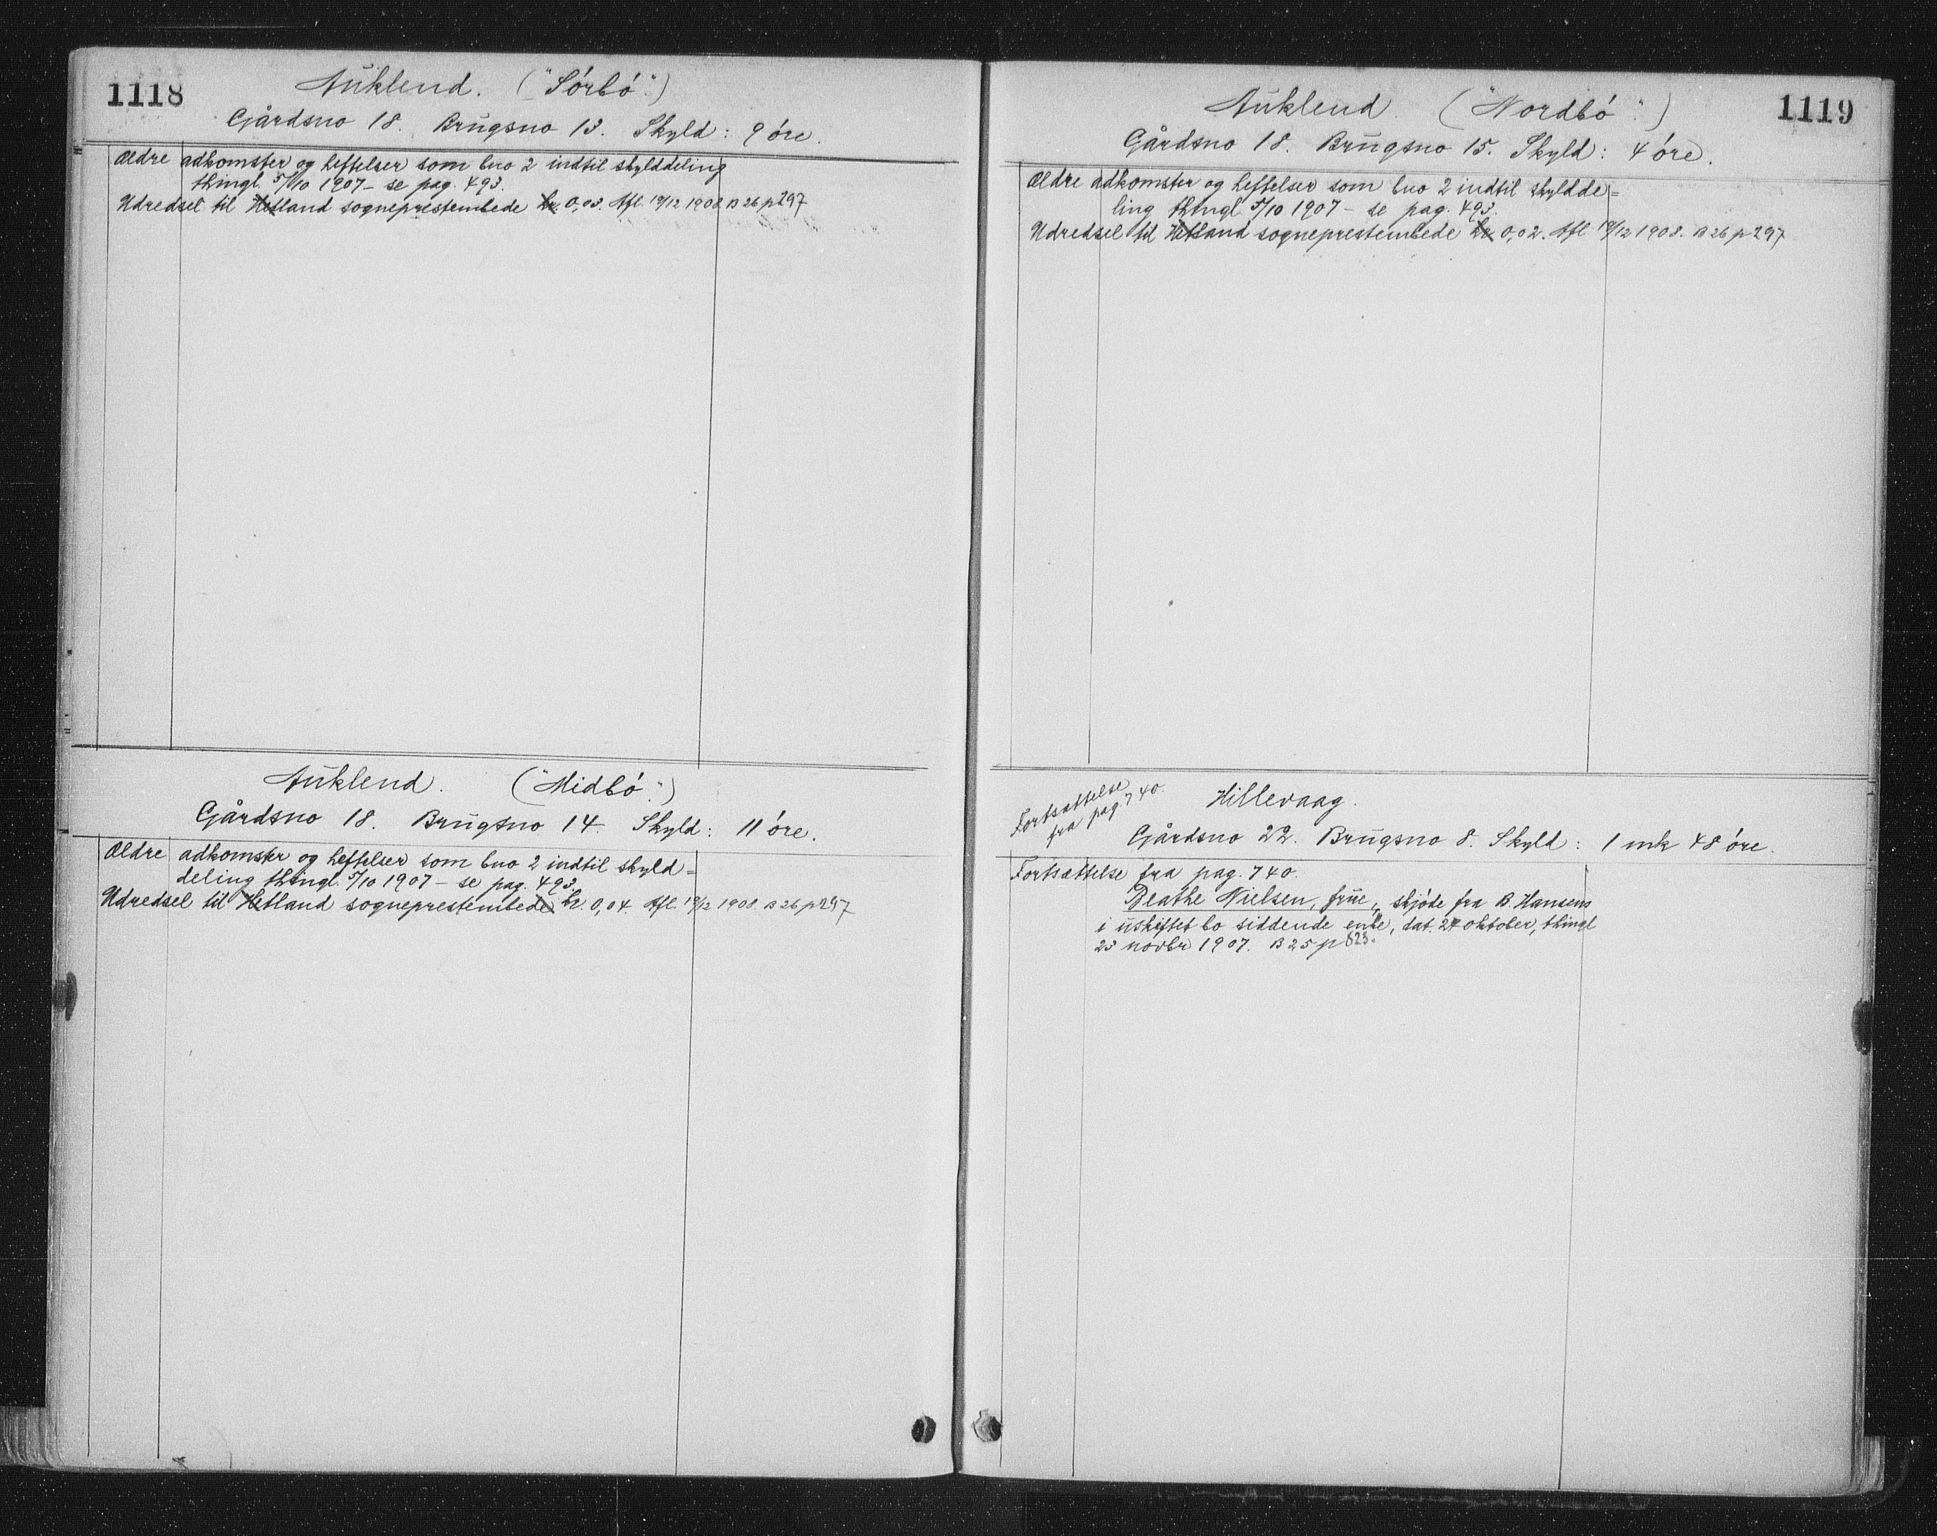 1118
Auklend. ("Sórbó".)
Gårdsno 18. Brugsno 13. Skyld: 9 óre.
Ældre adkomster og heftelser som bno 2 indtil skylddeling
thingl. 5/10 1907 – se pag. 493.
Udredsel til Hetland sogneprestembede kr. 0,03. Afl. 19/12 1908 B 26 p 297
Auklend. ("Midbó".)
Gårdsno 18. Brugsno 14. Skyld: 11 óre.
Ældre adkomster og heftelser som bno 2 indtil skyld=
deling thingl. 5/10 1907 – se pag. 493.
Udredsel til Hetland sogneprestembede kr. 0,04. Afl. 19/12 1908 B 26 p 297
1119
Auklend. ("Nordbó".)
Gårdsno 18. Brugsno 15. Skyld: 4 óre.
Ældre adkomster og heftelser som bno 2 indtil skyldde=
ling thingl. 5/10 1907 – se pag. 493.
Udredsel til Hetland sogneprestembede kr. 0,02. Afl 19/12 1908. B 26 p 297
Fortsættelse
fra pag. 740.
Hillevaag.
Gårdsno 22. Brugsno 8. Skyld: 1 mk 48 óre.
Fortsættelse fra pag. 740.
Beathe Nielsen, frue, skjóde fra B. Hansens
i uskiftet bo siddende enke, dat. 24 oktober, thingl
23 novbr 1907. B 25 p 623.